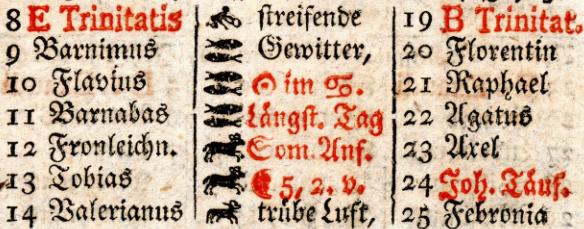 8 E Trinitatis streifende 19 B Trinitat.
9 Barnimus Gewitter, 20 Florentin
10 Flavius ☉ im ♋. 21 Raphael
11 Barnabas Längst. Tag 22 Agatus
12 Fronleichn. Som. Anf. 23 Axel
13 Tobias ☾ 5, 2. v. 24 Joh. Täuf.
14 Valerianus trübe Luft, 25 Febronia